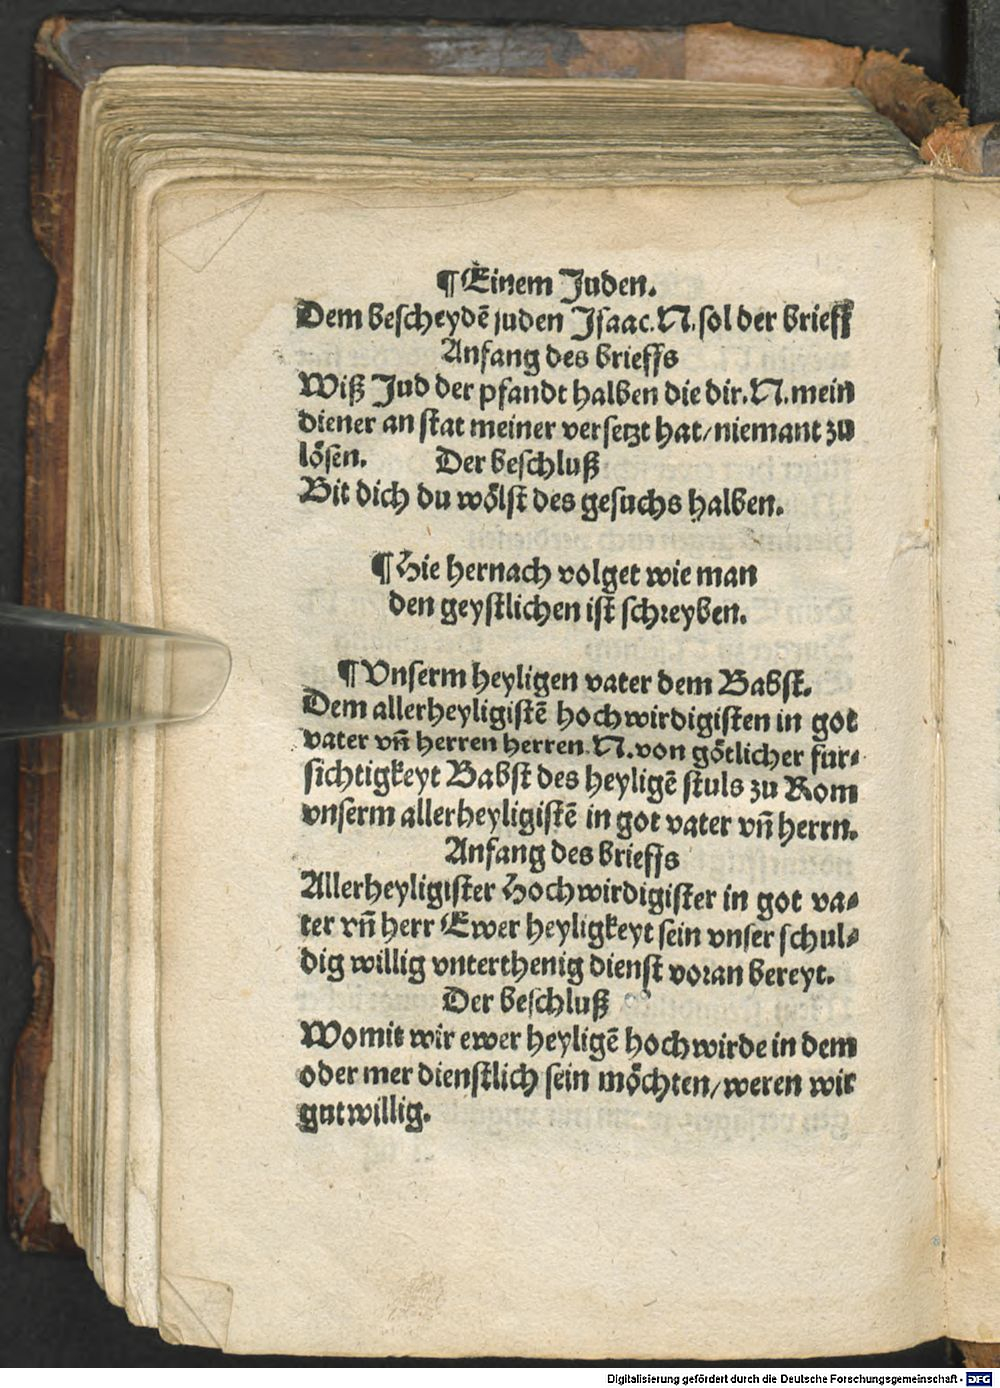 ¶ Einem Juden.
Dem bescheydē juden Isaac. N. sol der brieff
Anfang des brieffs
Wiß Jud der pfandt halben die dir. N. mein
diener an stat meiner versetzt hat/niemant zu
lösen. Der beschluß
Bit dich du wölst des gesuchs halben.
¶ Hie hernach volget wie man
den geystlichen ist schreyben.
¶ Vnserm heyligen vater dem Babst.
Dem allerheyligistē hochwirdigisten in got
vater vn̄ herren herren. N. von götlicher für⸗
sichtigkeyt Babst des heyligē stuls zu Rom
vnserm allerheyligistē in got vater vn̄ herrn.
Anfang des brieffs
Allerheyligister Hochwirdigister in got va⸗
ter vn̄ herr Ewer heyligkeyt sein vnser schul⸗
dig willig vnterthenig dienst voran bereyt.
Der beschluß
Womit wir ewer heyligē hochwirde in dem
oder mer dienstlich sein möchten/weren wir
gutwillig.
Digitalisierung gefördert durch die Deutsche Forschungsgemeinschaft - DFG